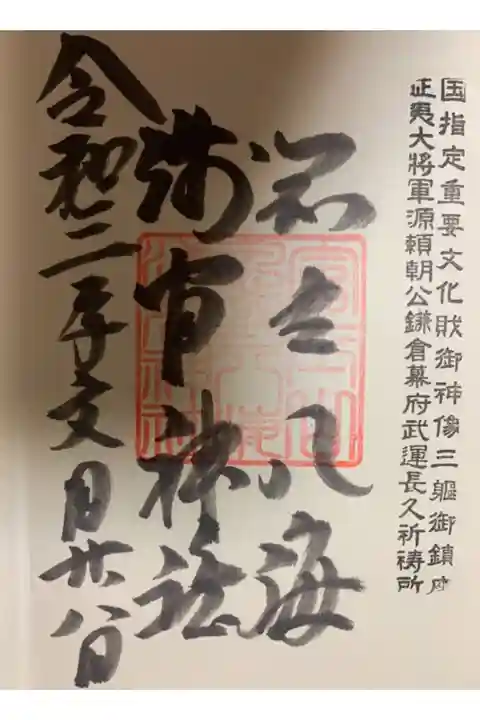 国指定重要文化財御神像三軀御鎮座
征夷大將軍源頼朝公鎌倉幕府武運長久祈祷所
冨士八海
浅間神社
令和二年文月廿八日